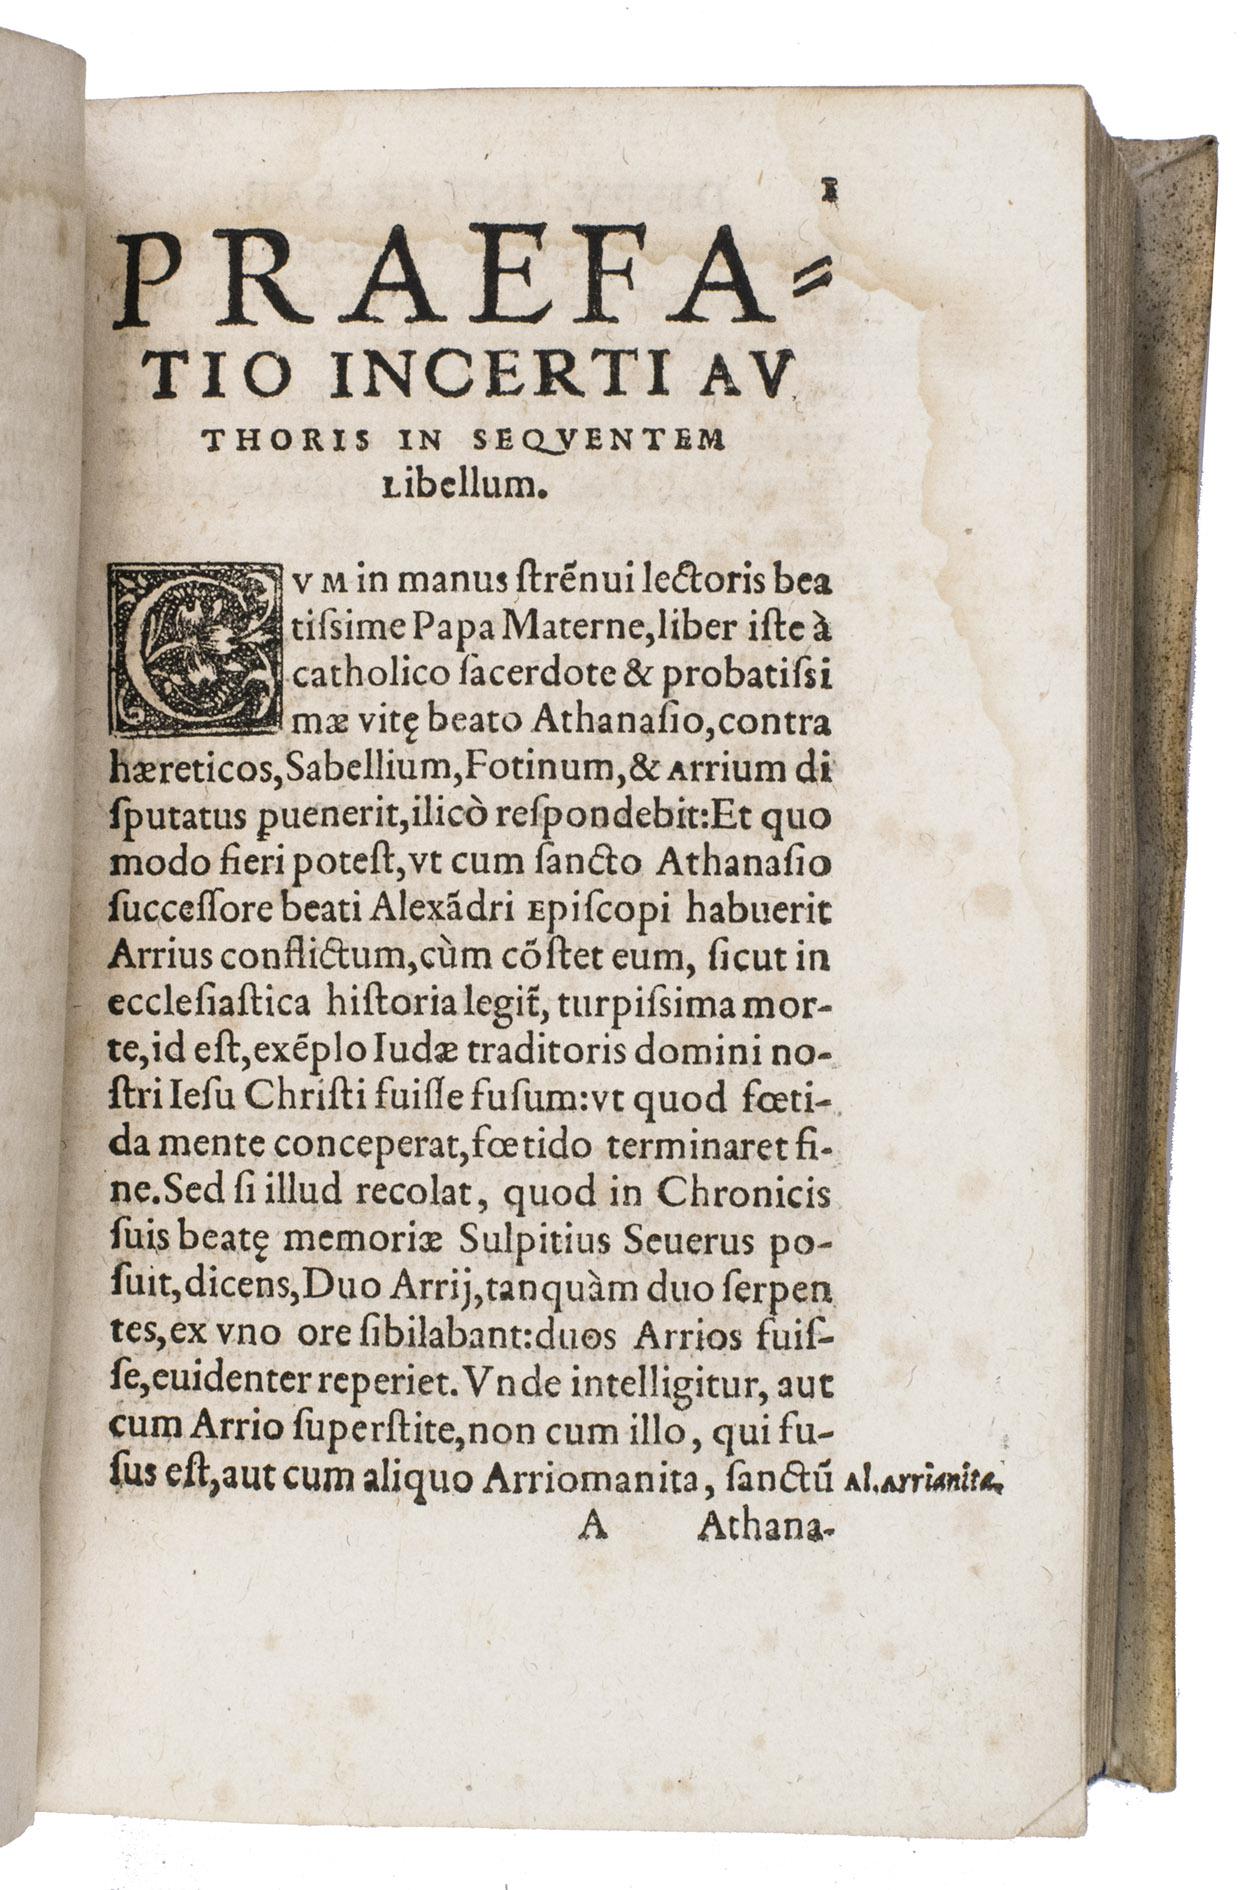 1
PRAEFA-
TIO INCERTI AV
THORIS IN SEQVENTEM
Libellum.
CVM in manus strẽnui lectoris bea
tiſsime Papa Materne,liber iſte à
catholico ſacerdote & probatiſsi
mæ vitę beato Athanaſio,contra
hæreticos,Sabellium,Fotinum,& Arrium di
ſputatus ꝑuenerit,ilicò reſpondebit:Et quo
modo fieri poteſt,vt cum ſancto Athanaſio
ſucceſſore beati Alexãdri Epiſcopi habuerit
Arrius conflictum,cùm cõſtet eum, ſicut in
eccleſiaſtica hiſtoria legit̃, turpiſsima mor-
te,id eſt,exẽplo Iudæ traditoris domini no-
ſtri Ieſu Chriſti fuiſſe fuſum:vt quod fœti-
da mente conceperat,fœtido terminaret fi-
ne.Sed ſi illud recolat, quod in Chronicis
ſuis beatę memoriæ Sulpitius Seuerus po-
ſuit,dicens,Duo Arrij,tanquàm duo ſerpen
tes,ex vno ore ſibilabant:duos Arrios fuiſ-
ſe,euidenter reperiet.Vnde intelligitur, aut
cum Arrio ſuperſtite,non cum illo, qui fu-
ſus eſt,aut cum aliquo Arriomanita, ſanctũ Al.Arrianita.
A Athana-